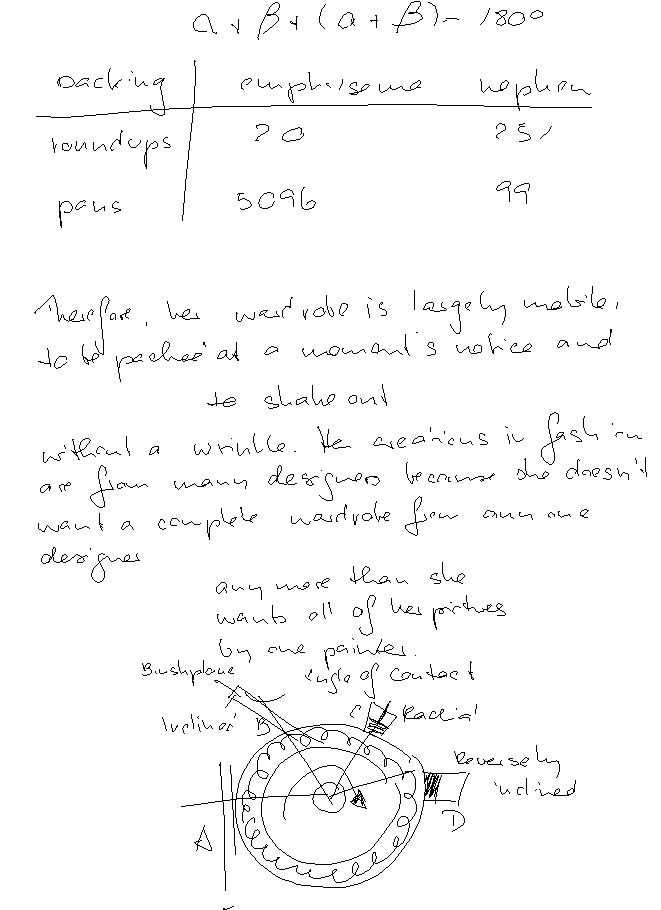 α + β + (α + β) = 180°
packing emphyseme nephew
roundups 20 251
pans 5096 99
Therefore, her wardrobe is largely mobile,
to be packed at a moment's notice and
to shake out
without a wrinkle. Her creations in fashion
are from many designers because she doesn't
want a complete wardrobe from any one
designer
any more than she
wants all of her pictures
by one painter.
Brushplane Angle of contact
Inclined B C Radial
Reversely
inclined
A D